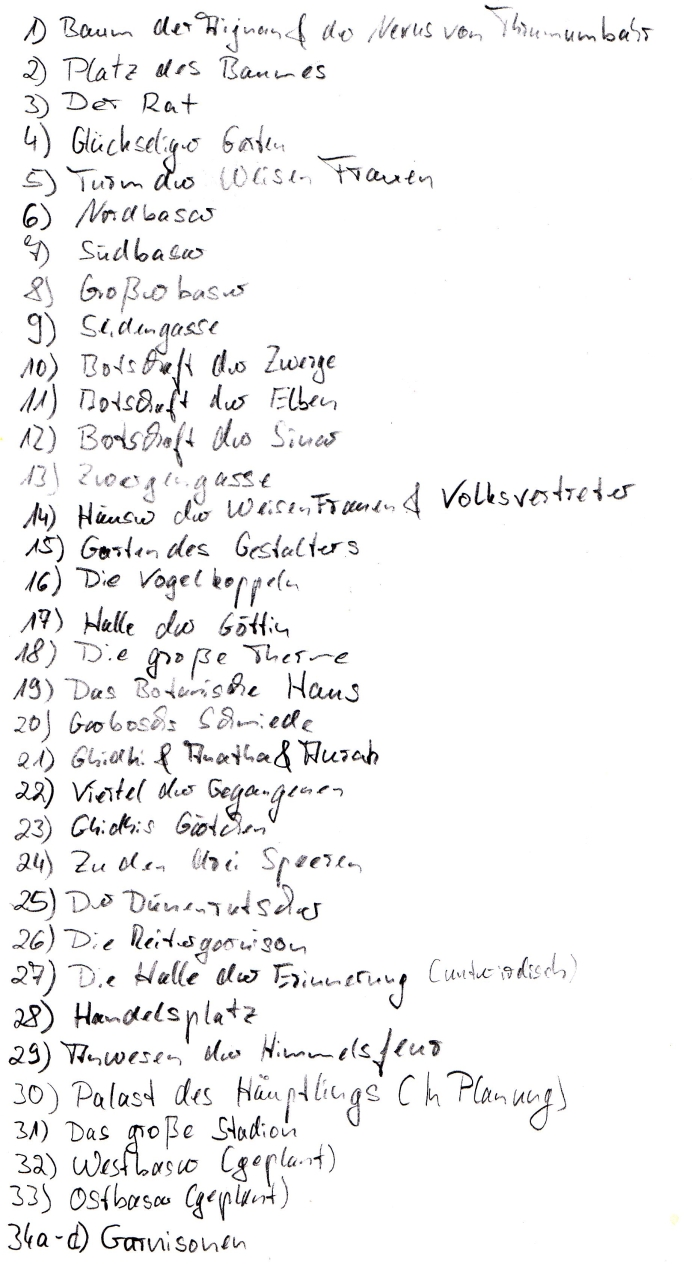 1) Baum der & der Nexus von
2) Platz des Baumes
3) Der Rat
4) Glückseliger Garten
5) Turm der Weisen Frauen
6) Nordbasar
7) Südbasar
8) Großer basar
9) Seidengasse
10) Botschaft der Zwerge
11) Botschaft der Elben
12) Botschaft der
13) Zwergengasse
14) Häuser der Weisen Frauen & Volksvertreter
15) Garten des Gestalters
16) Die Vogelkoppeln
17) Halle der Göttin
18) Die große Therme
19) Das Botanische Haus
20) Schmiede
21) & &
22) Viertel der Gegangenen
23)
24) Zu den drei Speeren
25) Der Dünenrutscher
26) Die Reitergarnison
27) Die Halle der Erinnerung (unterirdisch)
28) Handelsplatz
29) Anwesen der Himmelsfeuer
30) Palast des Häuptlings (In Planung)
31) Das große Stadion
32) Westbasar (geplant)
33) Ostbasar (geplant)
34a-d) Garnisonen